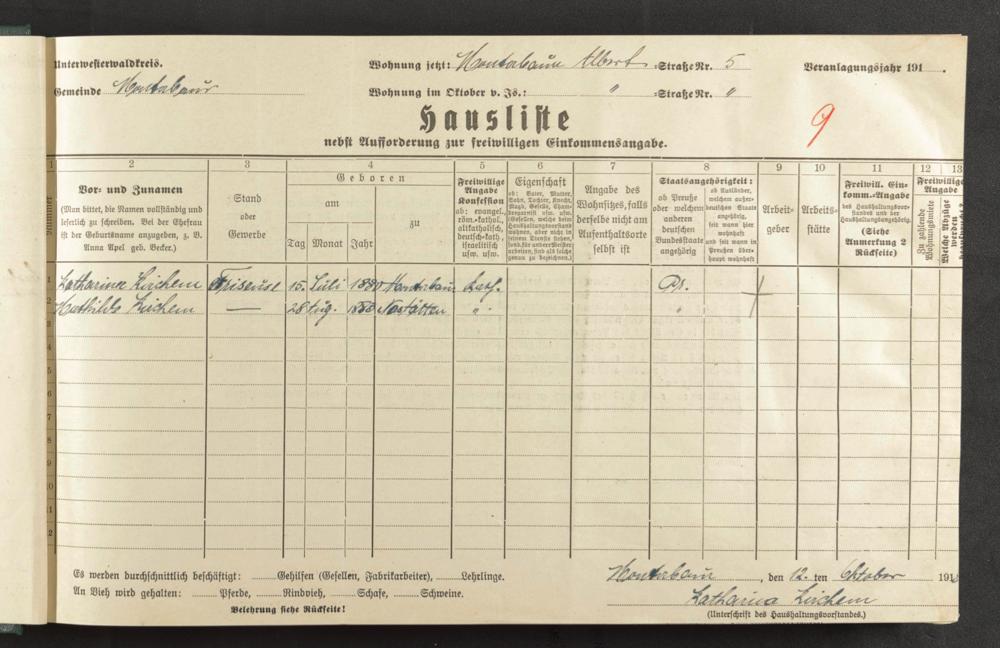 Unterwesterwaldkreis.
Wohnung jetzt: Montabaur Albert -Straße Nr. 5
Veranlagungsjahr 191 .
Gemeinde Montabaur
Wohnung im Oktober v. Js.: " -Straße Nr. "
9
Hausliste
nebst Aufforderung zur freiwilligen Einkommensangabe.
1 2 3 4 5 6 7 8 9 10 11 12 13
Nummer
Vor- und Zunamen
(Man bittet, die Namen vollständig und
leserlich zu schreiben. Bei der Ehefrau
ist der Geburtsname anzugeben, z. B.
Anna Apel geb. Becker.)
Stand
oder
Gewerbe
Geboren
am
zu
Tag Monat Jahr
Freiwillige
Angabe
Konfession
ob: evangel.,
röm.-kathol.,
altkatholisch,
deutsch-kath.,
israelitisch
usw. usw.
Eigenschaft
Angabe des
Wohnsitzes, falls
derselbe nicht am
Aufenthaltsorte
selbst ist
Staatsangehörigkeit:
ob Preuße
oder welchem
anderen
deutschen
Bundesstaate
angehörig
ob Ausländer,
welchem außer-
deutschen Staate
angehörig,
seit wann hier
wohnhaft
und seit wann in
Preußen über-
haupt wohnhaft
Arbeit-
geber
Arbeits-
stätte
Freiwill. Ein-
komm.-Angabe
des Haushaltungsvor-
standes und der
Haushaltungsangehörig.
(Siehe
Anmerkung 2
Rückseite)
Freiwillige
Angabe
Zu zahlende
Wohnungsmiete
Welche Abzüge
werden
1 Katharina Kirchem Friseuse 15. Juli 1880 Montabaur kath. Pr.
2 Mathilde Kirchem — 28 Aug. Nastätten " "
Es werden durchschnittlich beschäftigt: Gehilfen (Gesellen, Fabrikarbeiter), Lehrlinge.
An Vieh wird gehalten: Pferde, Rindvieh, Schafe, Schweine.
Belehrung siehe Rückseite!
Montabaur, den 12. ten Oktober 191
Katharina Kirchem
(Unterschrift des Haushaltungsvorstandes.)